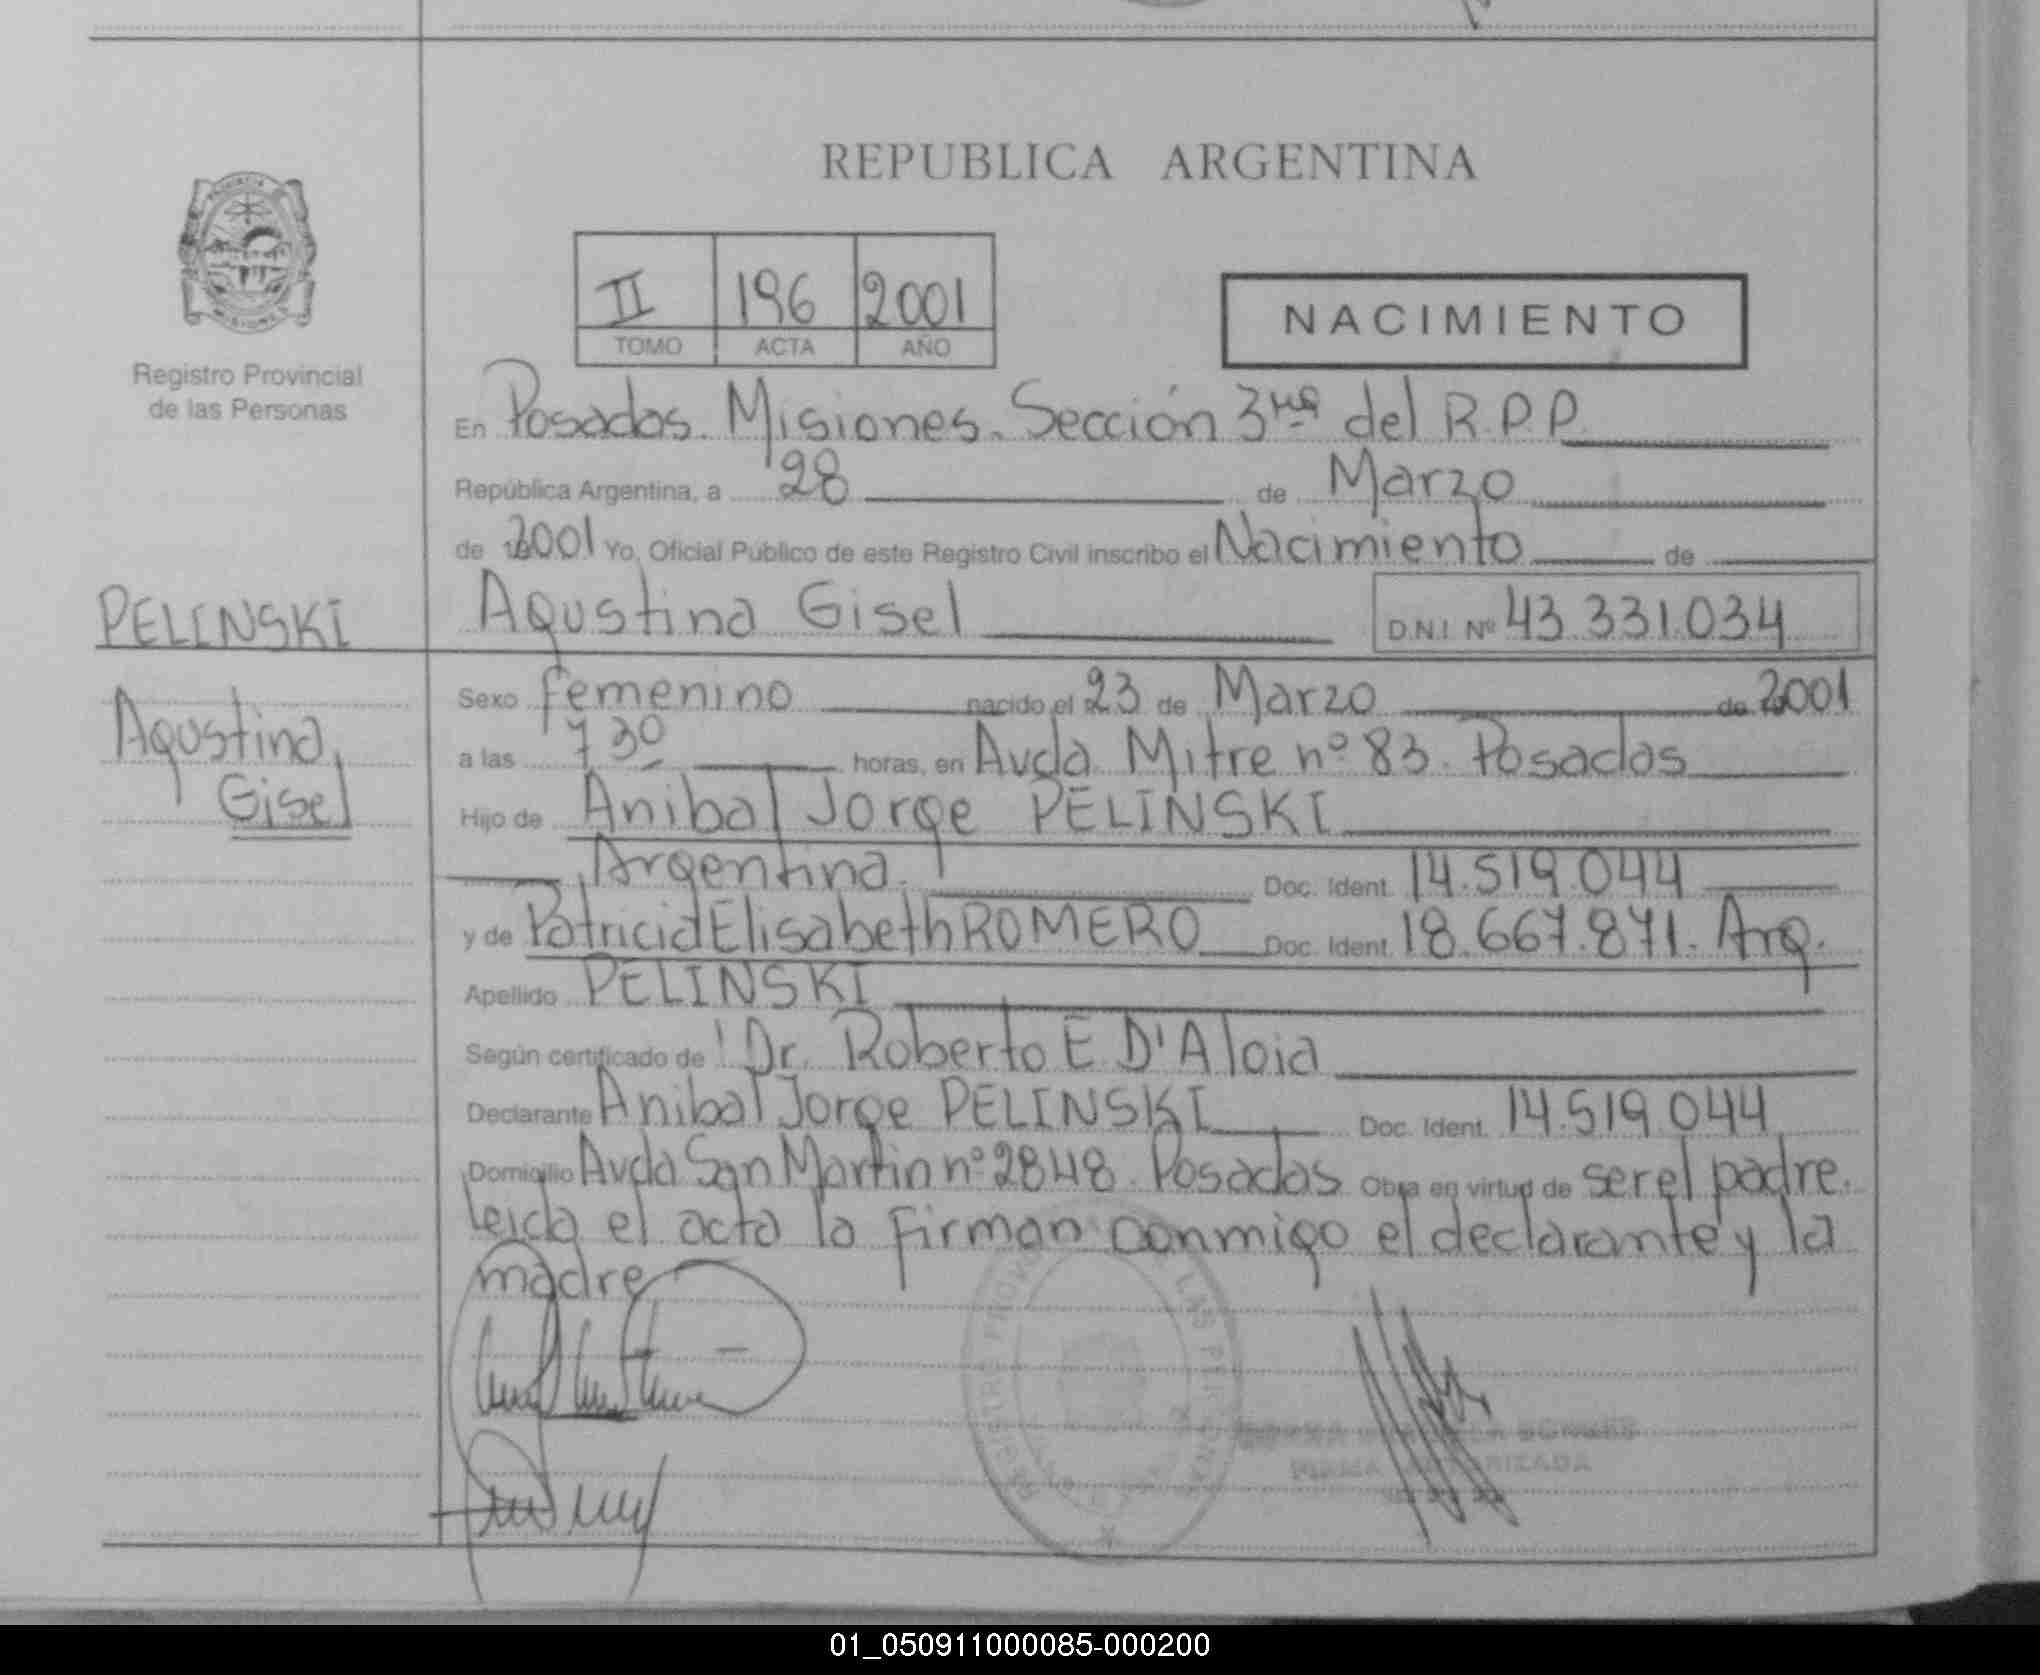 REPUBLICA ARGENTINA
PROVINCIA
MISIONES
Registro Provincial
de las Personas
II 196 2001
TOMO ACTA AÑO
NACIMIENTO
En Posadas. Misiones. Sección 3ra del R.P.P.
República Argentina, a 28 de Marzo
de 2001 Yo, Oficial Público de este Registro Civil inscribo el Nacimiento de
PELINSKI
Agustina Gisel
Agustina Gisel D.N.I. Nº 43.331.034
Sexo femenino nacido el 23 de Marzo de 2001
a las 7 30 horas, en Avda Mitre nº 83. Posadas
Hijo de Anibal Jorge PELINSKI
Argentina. Doc. Ident. 14.519.044
y de Patricia Elisabeth ROMERO Doc. Ident. 18.667.871. Arg.
Apellido PELINSKI
Según certificado de Dr. Roberto E. D'Aloia
Declarante Anibal Jorge PELINSKI Doc. Ident. 14.519.044
Domicilio Avda San Martin nº 2848. Posadas Obra en virtud de ser el padre.
leida el acta la firman conmigo el declarante y la
madre
FIRMA AUTORIZADA
01_050911000085-000200